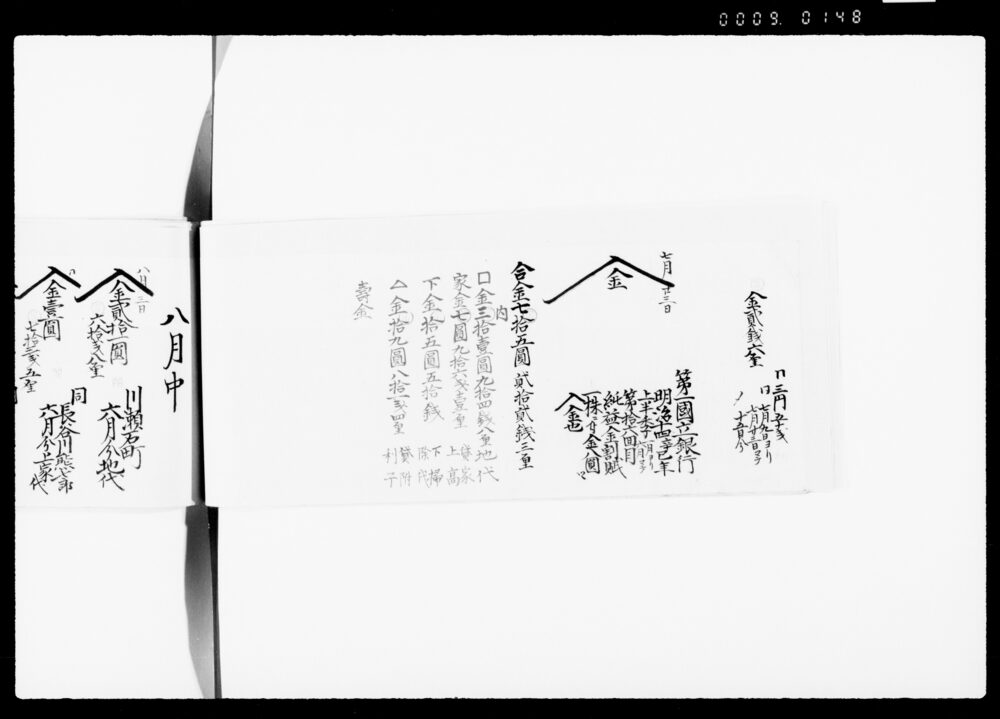 0009. 0148
金貳銭六厘
三円五十銭
七月廿三日
金
第一國立銀行
明治十四辛巳年
上半季
第拾六回
純益金割賦
一株ニ付金八圓
入金
合金七拾五圓貳拾貳銭三厘
内
口金三拾壹圓九拾四銭八厘 地代
家金七圓九拾六銭壹厘 貸家上高
下金拾五圓五拾銭 下掃除代
△金拾九圓八拾一銭四厘 貸附利子
壽金
八月中
八月三日
金貳拾一圓
六拾銭八厘
川瀬石町
六月分地代
金壹圓
七拾三銭五厘
同
長谷川熊次郎
六月分上家代